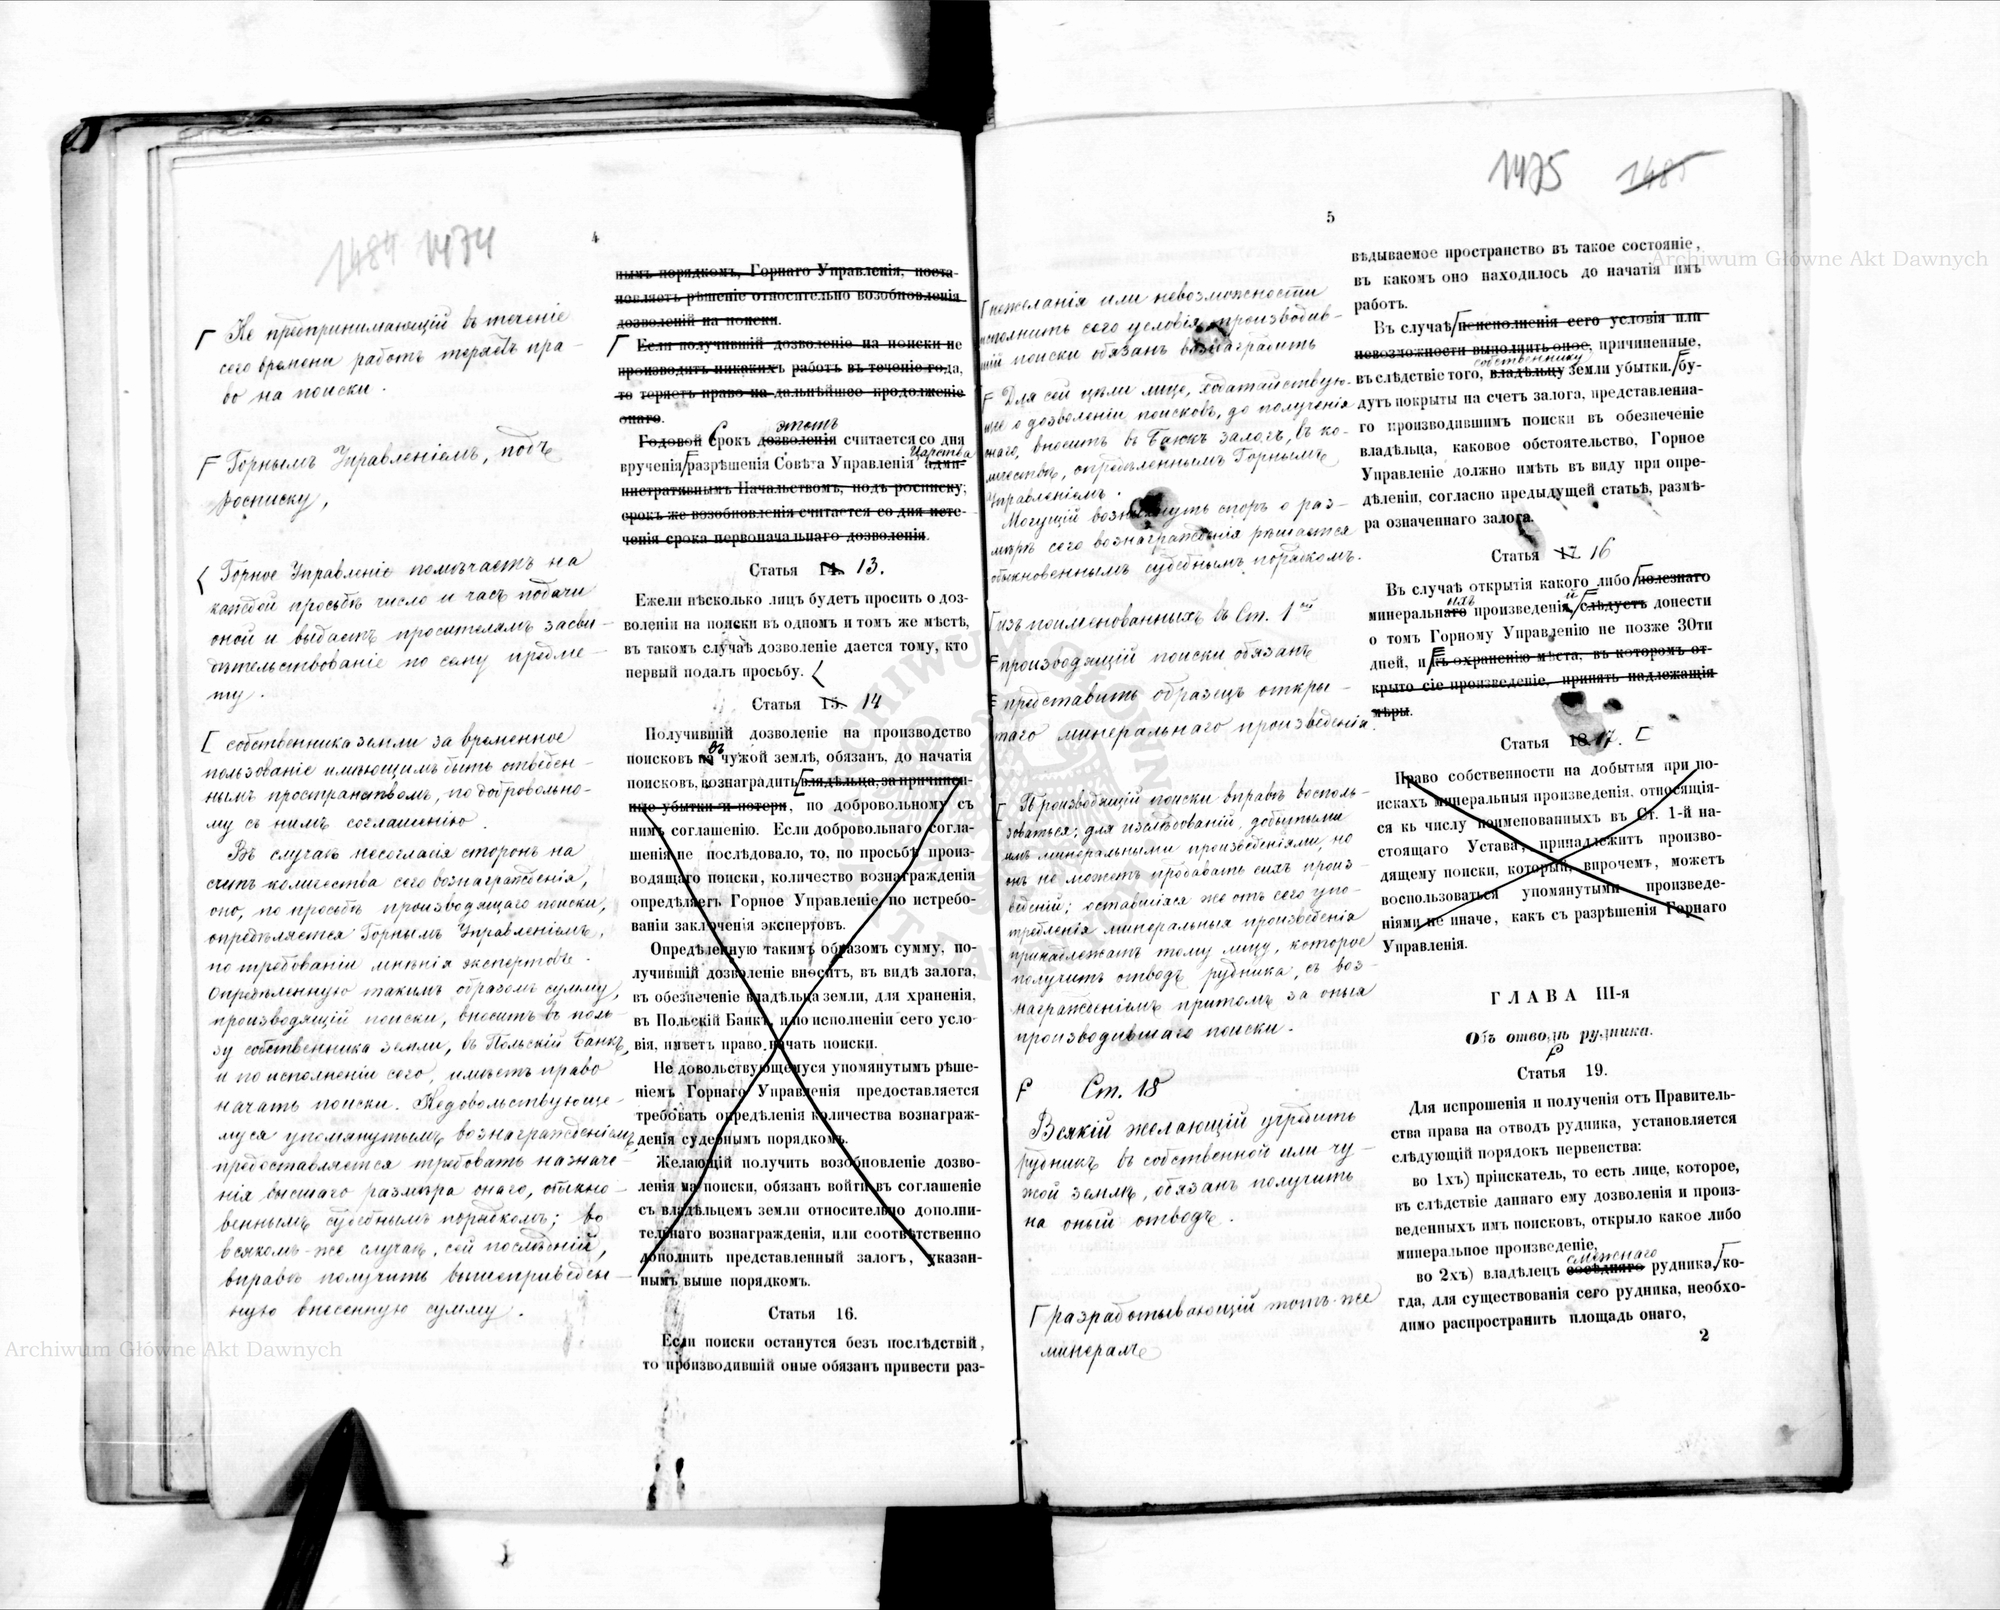 1484 1474
4
Не предпринимающій въ теченіе
сего времени работъ теряетъ пра-
во на поиски.
Горнымъ Управленіемъ, подъ
росписку,
Горное Управленіе помѣчаетъ на
каждой просьбѣ число и часъ подачи
оной и выдаетъ просителямъ засви-
дѣтельствованіе по сему предме-
ту.
собственника земли за временное
пользованіе имѣющимъ быть отведен-
нымъ пространствомъ, по добровольно-
му съ нимъ соглашенію.
Въ случаѣ несогласія сторонъ на
счетъ количества сего вознагражденія,
оно, по просьбѣ производящаго поиски,
опредѣляется Горнымъ Управленіемъ,
по требованіи мнѣнія экспертовъ.
Опредѣленную такимъ образомъ сумму,
производящій поиски, вноситъ въ поль-
зу собственника земли, въ Польскій Банкъ,
и по исполненіи сего, имѣетъ право
начать поиски. Недовольствующе-
муся упомянутымъ вознагражденіемъ,
предоставляется требовать назначе-
нія высшаго размѣра онаго, обыкно-
веннымъ судебнымъ порядкомъ; во
всякомъ же случаѣ, сей послѣдній,
вправѣ получить вышеприведен-
ную внесенную сумму.
нымъ порядкомъ, Горнаго Управленія, поста-
новляетъ рѣшеніе относительно возобновленія
дозволеній на поиски.
Если получившій дозволеніе на поиски не
производитъ никакихъ работъ въ теченіе года,
то теряетъ право на дальнѣйшее продолженіе
онаго.
этотъ
Годовой Срокъ дозволенія считается со дня
Царства
врученія разрѣшенія Совѣта Управленія адми-
нистративнымъ Начальствомъ, подъ росписку;
срокъ же возобновленія считается со дня исте-
ченія срока первоначальнаго дозволенія.
Статья 14. 13.
Ежели нѣсколько лицъ будетъ просить о доз-
воленіи на поиски въ одномъ и томъ же мѣстѣ,
въ такомъ случаѣ дозволеніе дается тому, кто
первый подалъ просьбу.
Статья 15. 14
Получившій дозволеніе на производство
въ
поисковъ на чужой землѣ, обязанъ, до начатія
поисковъ, вознаградить владѣльца, за причинен-
ные убытки и потери, по добровольному съ
нимъ соглашенію. Если добровольнаго согла-
шенія не послѣдовало, то, по просьбѣ произ-
водящаго поиски, количество вознагражденія
опредѣляетъ Горное Управленіе по истребо-
ваніи заключенія экспертовъ.
Опредѣленную такимъ образомъ сумму, по-
лучившій дозволеніе вноситъ, въ видѣ залога,
въ обезпеченіе владѣльца земли, для храненія,
въ Польскій Банкъ, и по исполненіи сего усло-
вія, имѣетъ право начать поиски.
Не довольствующемуся упомянутымъ рѣше-
ніемъ Горнаго Управленія предоставляется
требовать опредѣленія количества вознаграж-
денія судебнымъ порядкомъ.
Желающій получить возобновленіе дозво-
ленія на поиски, обязанъ войти въ соглашеніе
съ владѣльцемъ земли относительно дополни-
тельнаго вознагражденія, или соотвѣтственно
дополнить представленный залогъ, указан-
нымъ выше порядкомъ.
Статья 16.
Если поиски останутся безъ послѣдствій,
то производившій оные обязанъ привести раз-
1475 1485
5
нежеланія или невозможности
исполнить сего условія, производив-
шій поиски обязанъ вознаградить
Для сей цѣли лице, ходатайствую-
щее о дозволеніи поисковъ, до полученія
онаго, вноситъ въ Банкъ залогъ, въ ко-
личествѣ, опредѣленнымъ Горнымъ
Управленіемъ.
Могущій возникнуть споръ о раз-
мѣрѣ сего вознагражденія рѣшается
обыкновеннымъ судебнымъ порядкомъ.
изъ поименованныхъ въ Ст. 1ой
производящій поиски обязанъ
представить образецъ откры-
таго минеральнаго произведенія.
Производящій поиски вправѣ восполь-
зоваться, для изслѣдованій, добытыми
имъ минеральными произведеніями, но
онъ не можетъ продавать сихъ произ-
веденій; оставшіяся же отъ сего упо-
требленія минеральныя произведенія
принадлежатъ тому лицу, которое
получитъ отводъ рудника, съ воз-
награжденіемъ притомъ за оныя
производившаго поиски.
Ст. 18
Всякій желающій учредить
рудникъ въ собственной или чу-
жой землѣ, обязанъ получить
на оный отводъ.
разработывающій тотъ-же
минералъ
вѣдываемое пространство въ такое состояніе,
въ какомъ оно находилось до начатія имъ
работъ.
Въ случаѣ неисполненія сего условія или
невозможности выполнить оное, причиненные,
собственнику
въ слѣдствіе того, владѣльцу земли убытки, бу-
дутъ покрыты на счетъ залога, представленна-
го производившимъ поиски въ обезпеченіе
владѣльца, каковое обстоятельство, Горное
Управленіе должно имѣть въ виду при опре-
дѣленіи, согласно предыдущей статьѣ, размѣ-
ра означеннаго залога.
Статья 17. 16
Въ случаѣ открытія какого либо полезнаго
ихъ й
минеральнаго произведенія, слѣдуетъ донести
о томъ Горному Управленію не позже 30ти
дней, и къ охраненію мѣста, въ которомъ от-
крыто сіе произведеніе, принять надлежащія
мѣры.
Статья 18. 17.
Право собственности на добытыя при по-
искахъ минеральныя произведенія, относящія-
ся къ числу поименованныхъ въ Ст. 1-й на-
стоящаго Устава, принадлежитъ произво-
дящему поиски, который, впрочемъ, можетъ
воспользоваться упомянутыми произведе-
ніями не иначе, какъ съ разрѣшенія Горнаго
Управленія.
ГЛАВА III-я
Объ отводѣ рудника.
Статья 19.
Для испрошенія и полученія отъ Правитель-
ства права на отводъ рудника, установляется
слѣдующій порядокъ первенства:
во 1хъ) пріискатель, то есть лице, которое,
въ слѣдствіе даннаго ему дозволенія и произ-
веденныхъ имъ поисковъ, открыло какое либо
минеральное произведеніе,
смежнаго
во 2хъ) владѣлецъ сосѣдняго рудника, ко-
гда, для существованія сего рудника, необхо-
димо распространить площадь онаго,
2
Archiwum Główne Akt Dawnych
Archiwum Główne Akt Dawnych